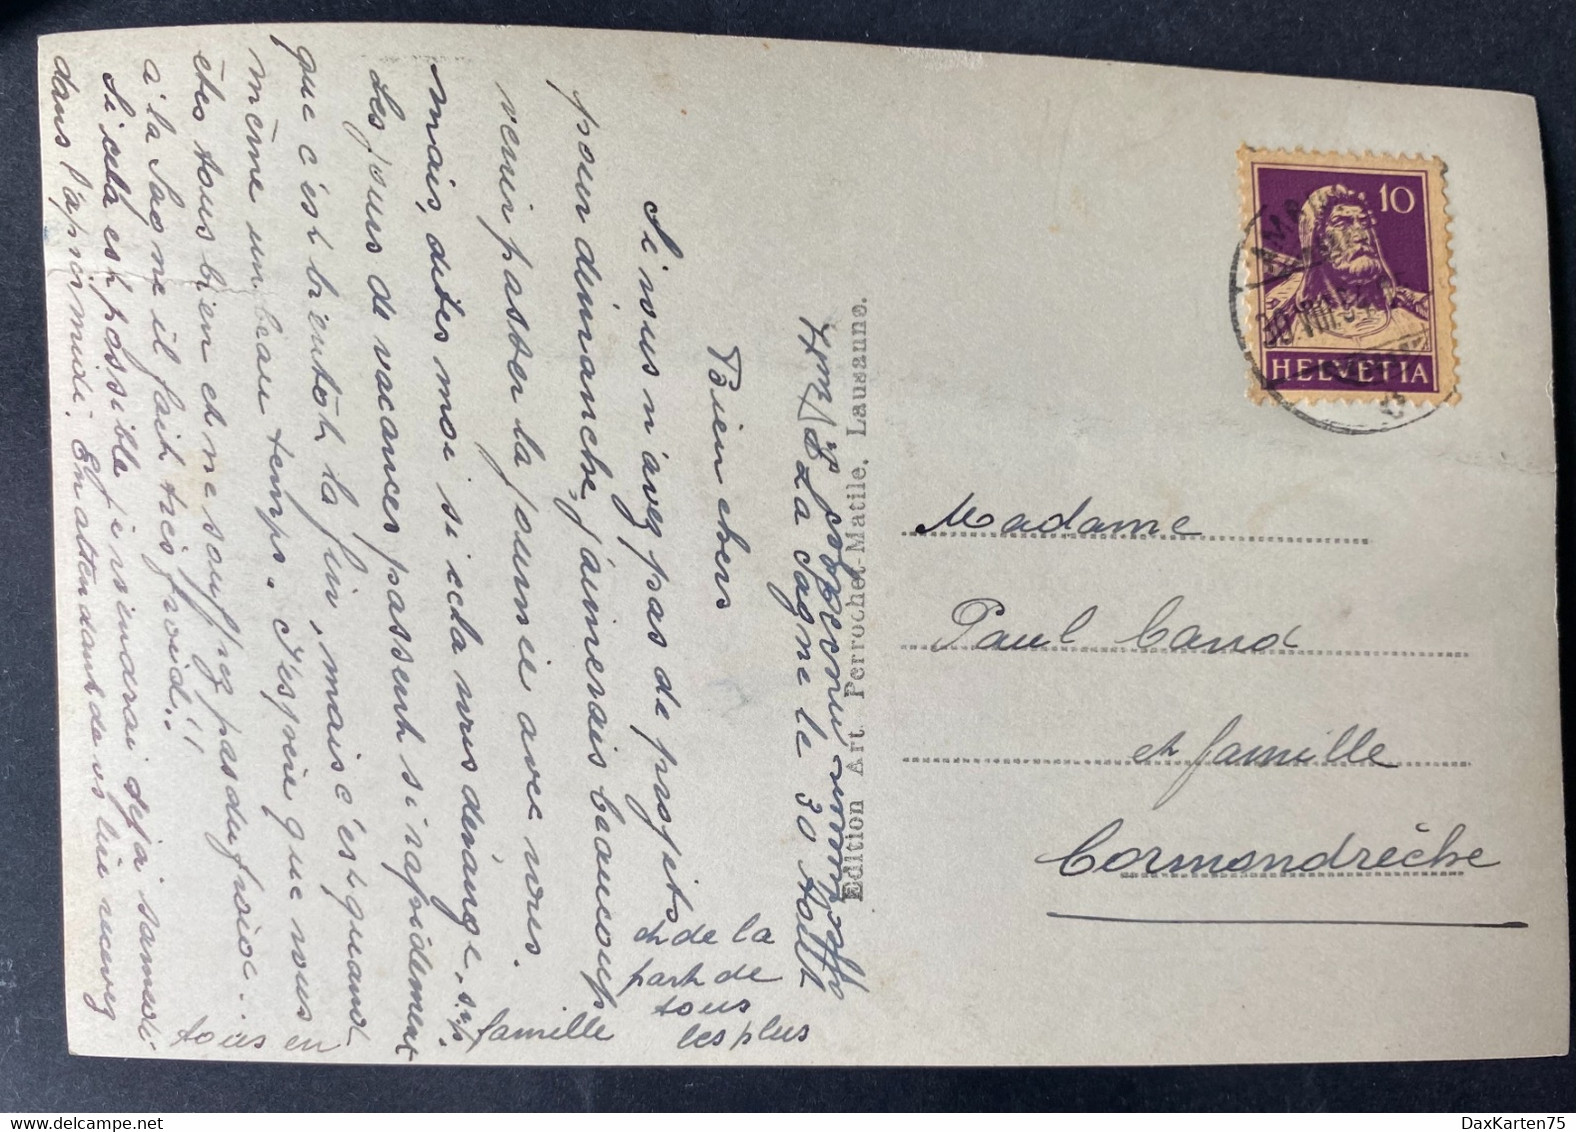 La Sagne le 30 Août
Bien chers
Si vous n'avez pas de projets
pour dimanche, j'aimerais beaucoup
venir passer la journée avec vous.
mais, dites moi si cela vous dérange, s.v.p.
Les jours de vacances passent si rapidement
que c'est bientôt la fin, mais c'est quand
même un beau temps. J'espère que vous
êtes tous bien et ne souffrez pas du froid..
à la Sagne il fait très froid!!
Si cela est possible, j'irai déjà samedi
dans l'après-midi. En attendant de vs lire recevez
tous en
famille
les plus
et de la
part de
tous
Edition Art. Perrochet-Matile, Lausanne.
10
HELVETIA
30.VIII.
Madame
Paul Cand
et famille
Cormondrèche
DaxKarten75
www.delcampe.net